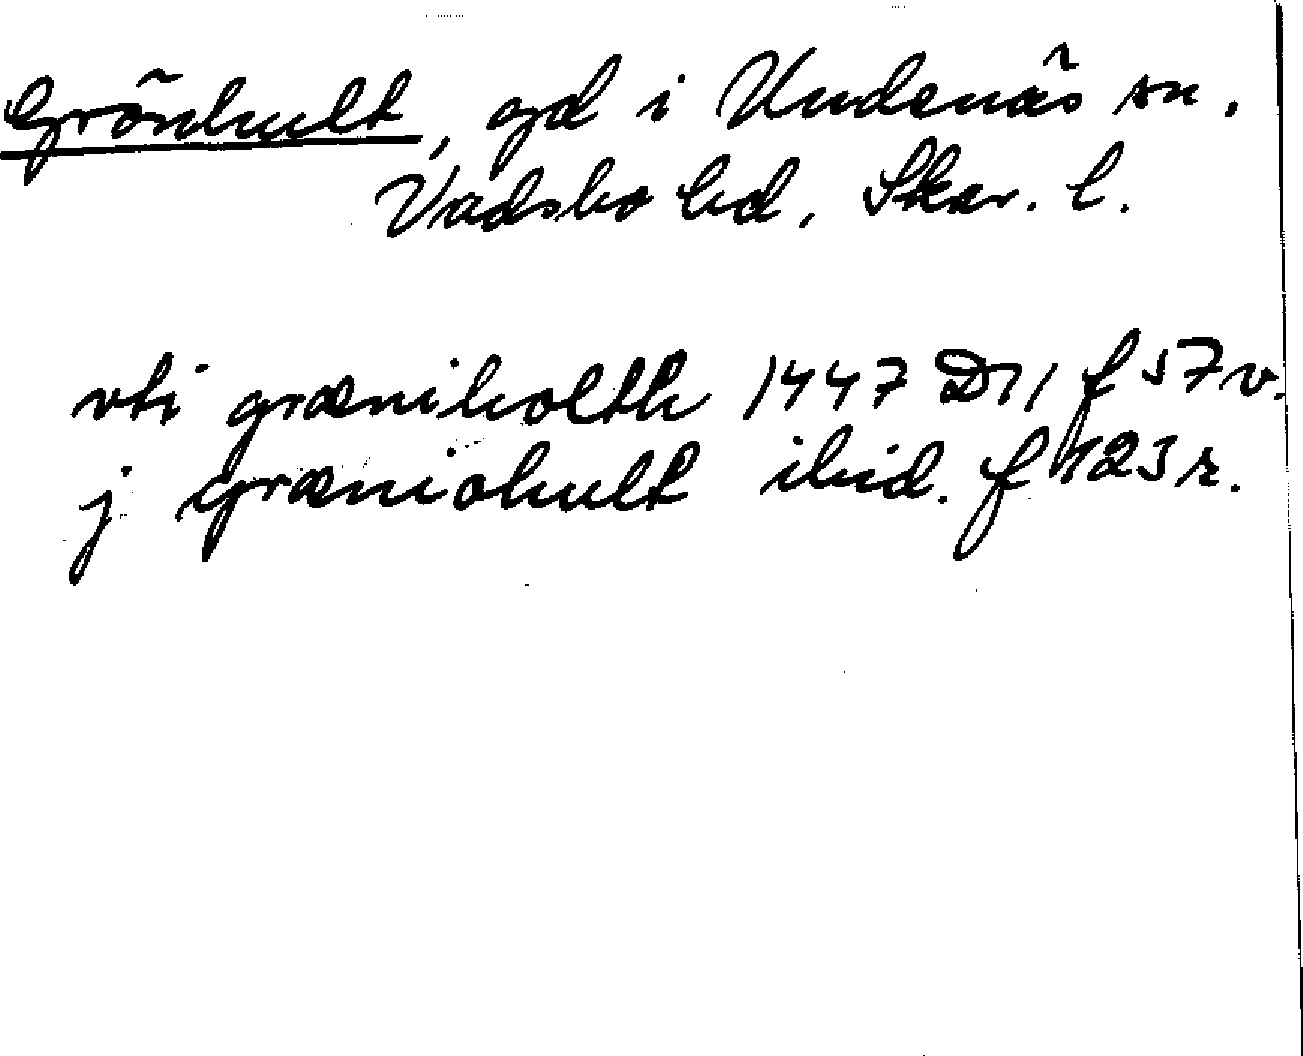 Grönhult, gd i Undenäs sn.
Vadsbo hd, Skar. l.
vti græniholth 1447 D11 f 57 v.
j græniohult ibid. f 123 r.